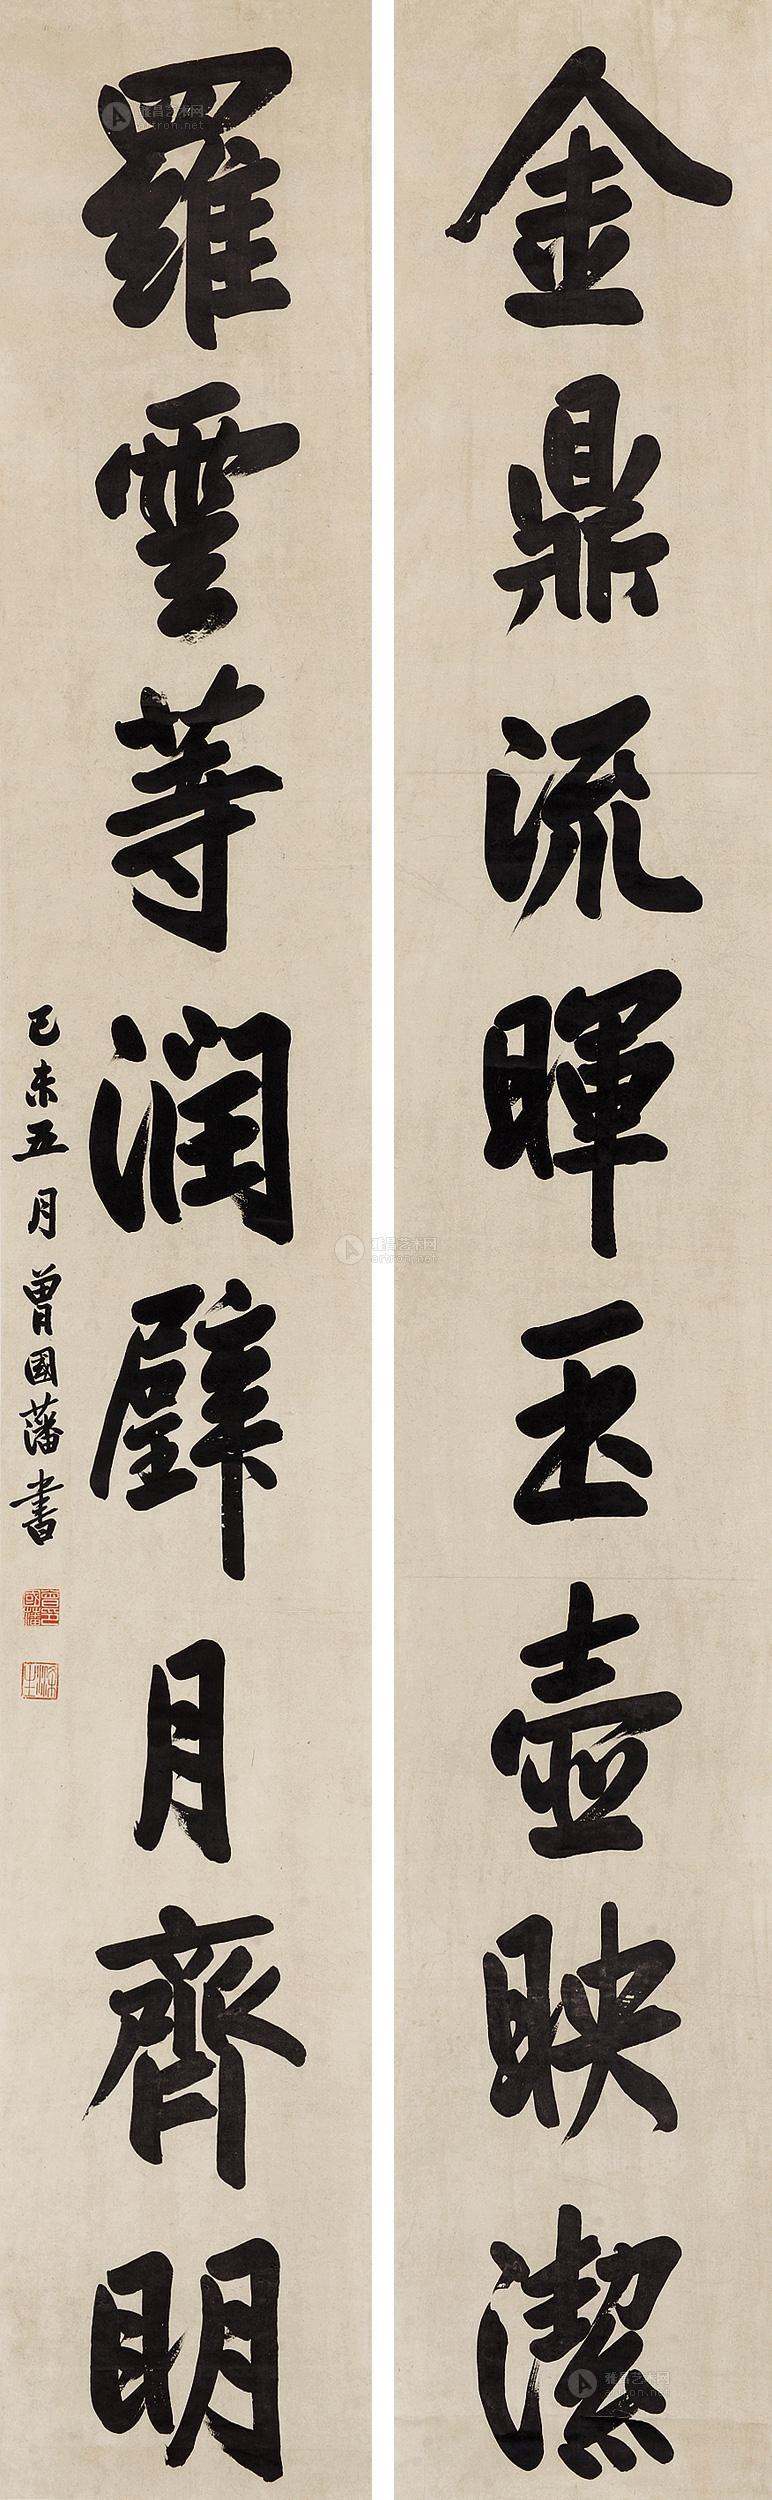 金鼎流暉玉壺映潔
羅雲等潤璧月齊明
己未五月曾國藩書
曾國藩印
滌生
雅昌艺术网
artron.net
雅昌艺术网
artron.net
雅昌艺术网
artron.net